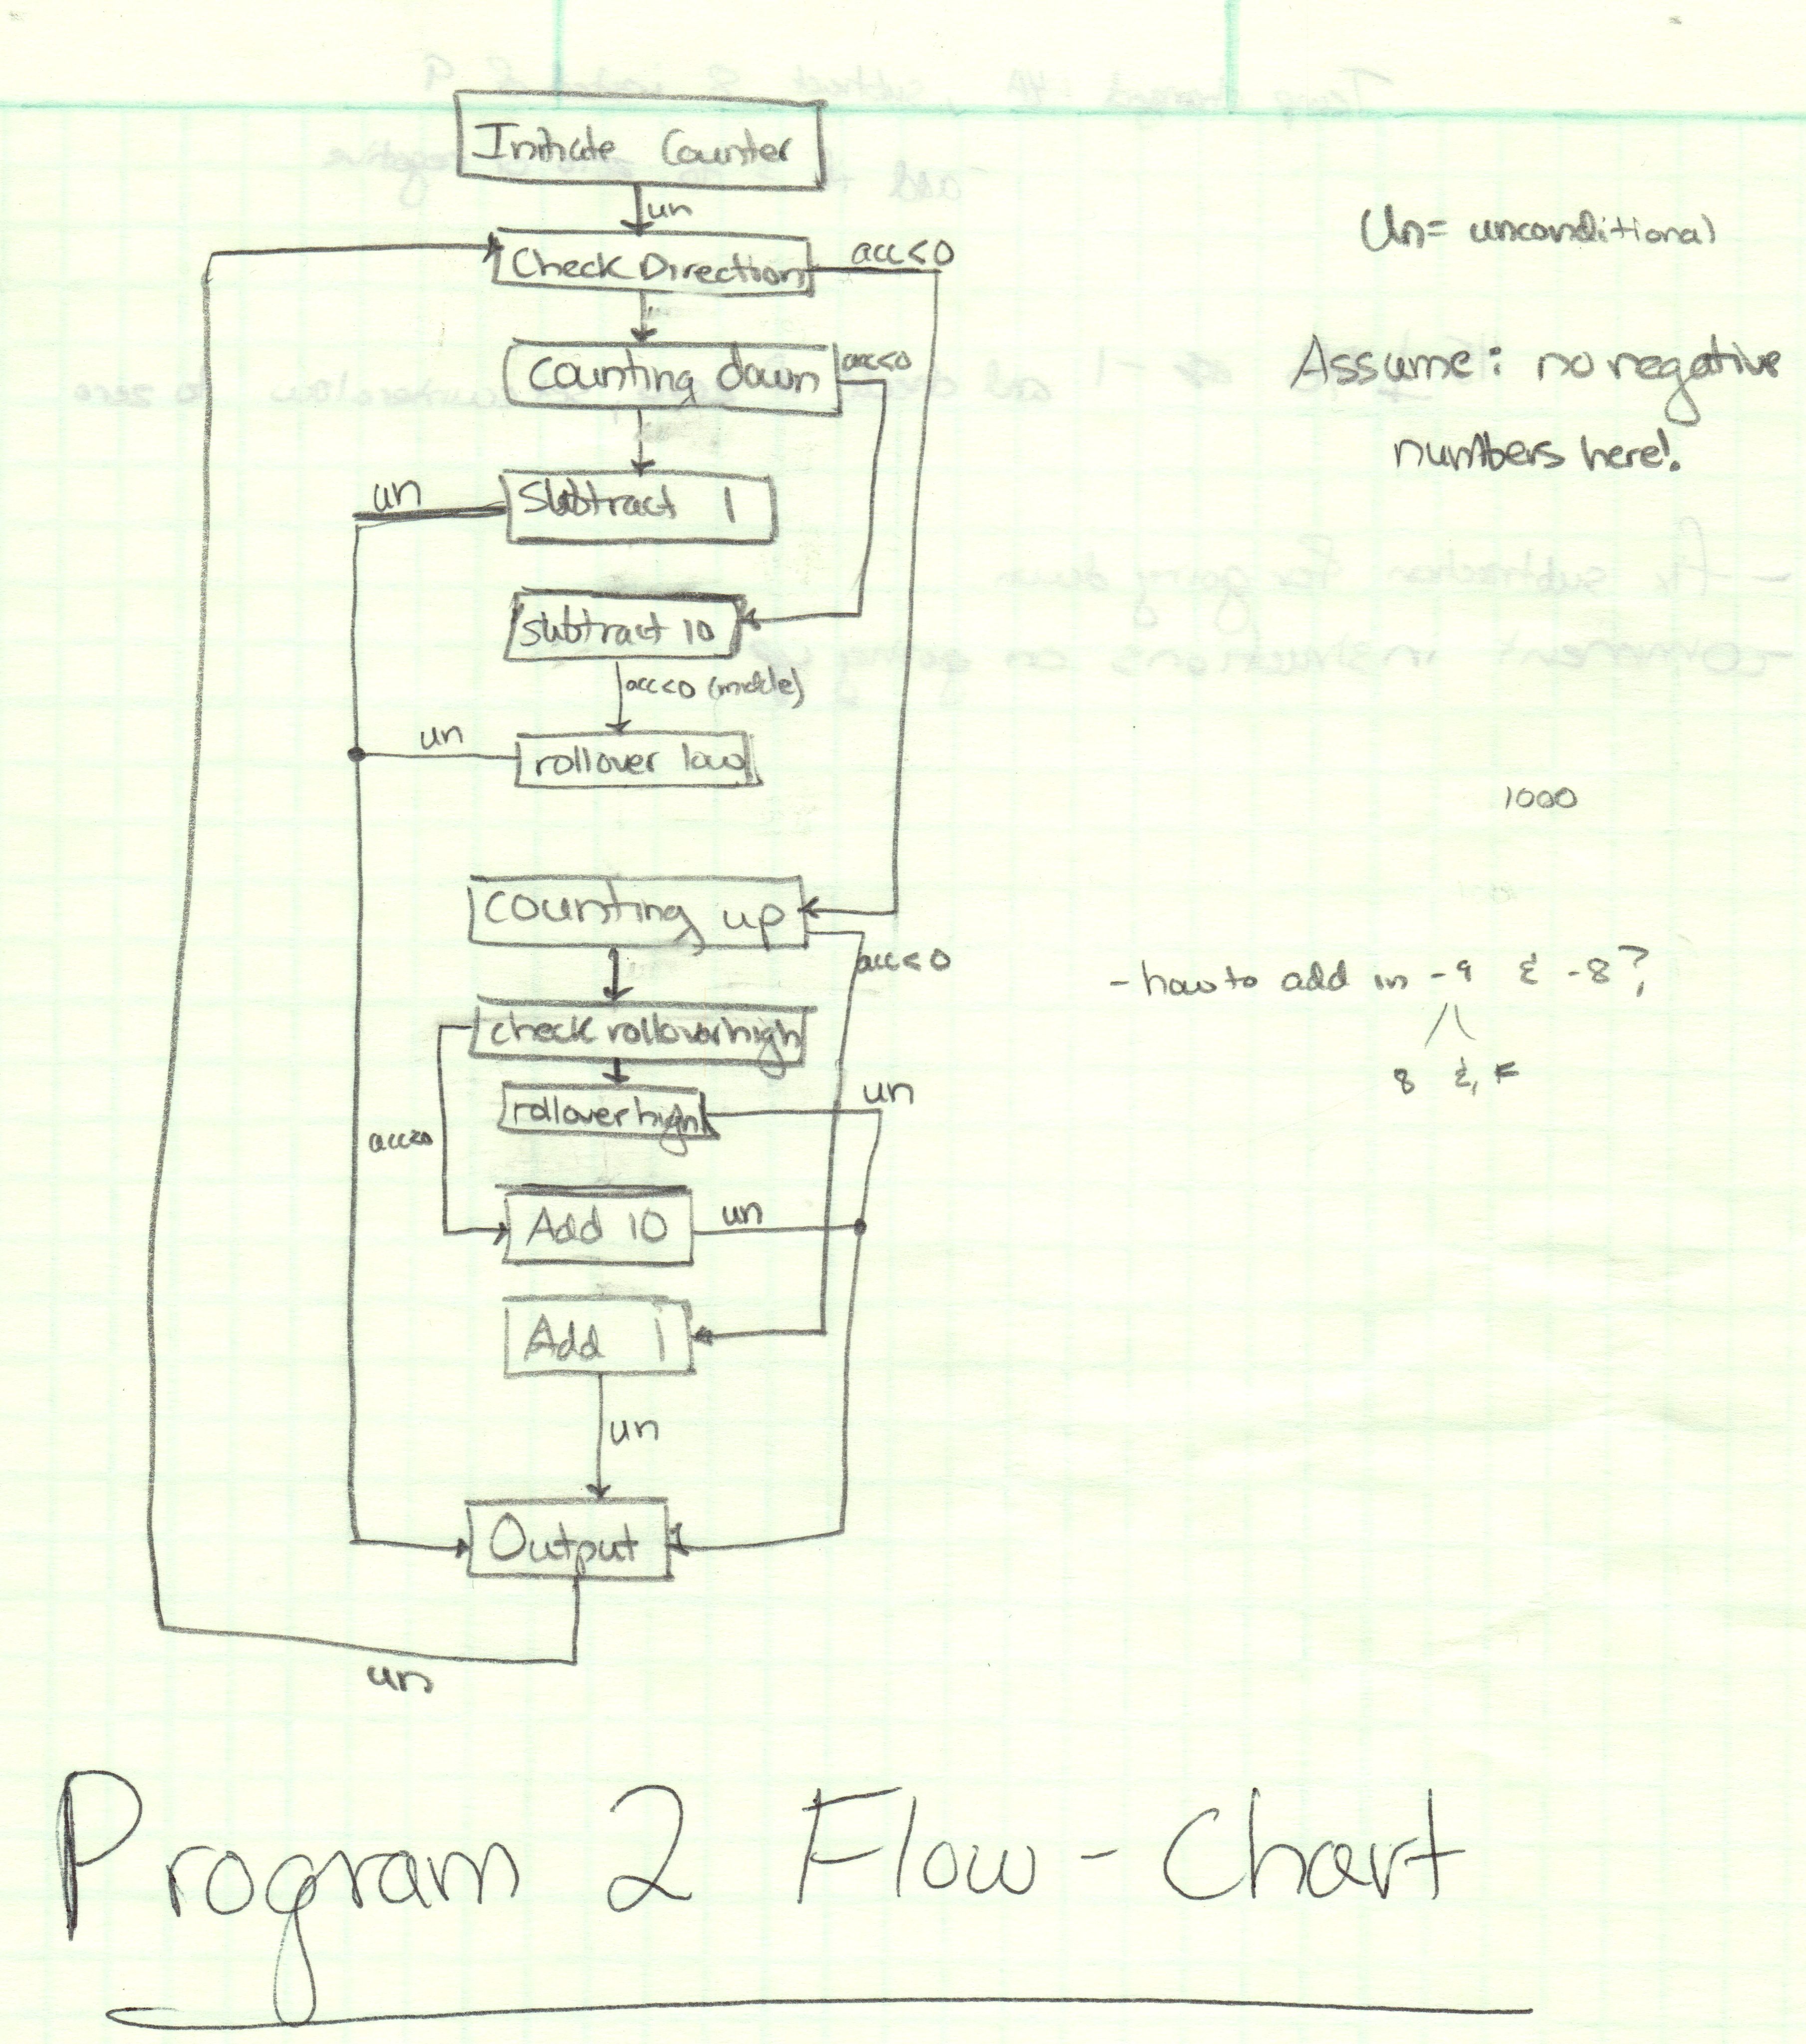 Initiate Counter
un
Check Direction
acc<0
counting down
acc<0
un
Subtract 1
subtract 10
acc<0 (middle)
un
rollover low
counting up
acc<0
check rollover high
rollover high
un
acc<0
Add 10
un
Add 1
un
Output
un
Un = unconditional
Assume: no negative
numbers here!
1000
- how to add in -9 & -8?
8 &, F
Program 2 Flow-Chart